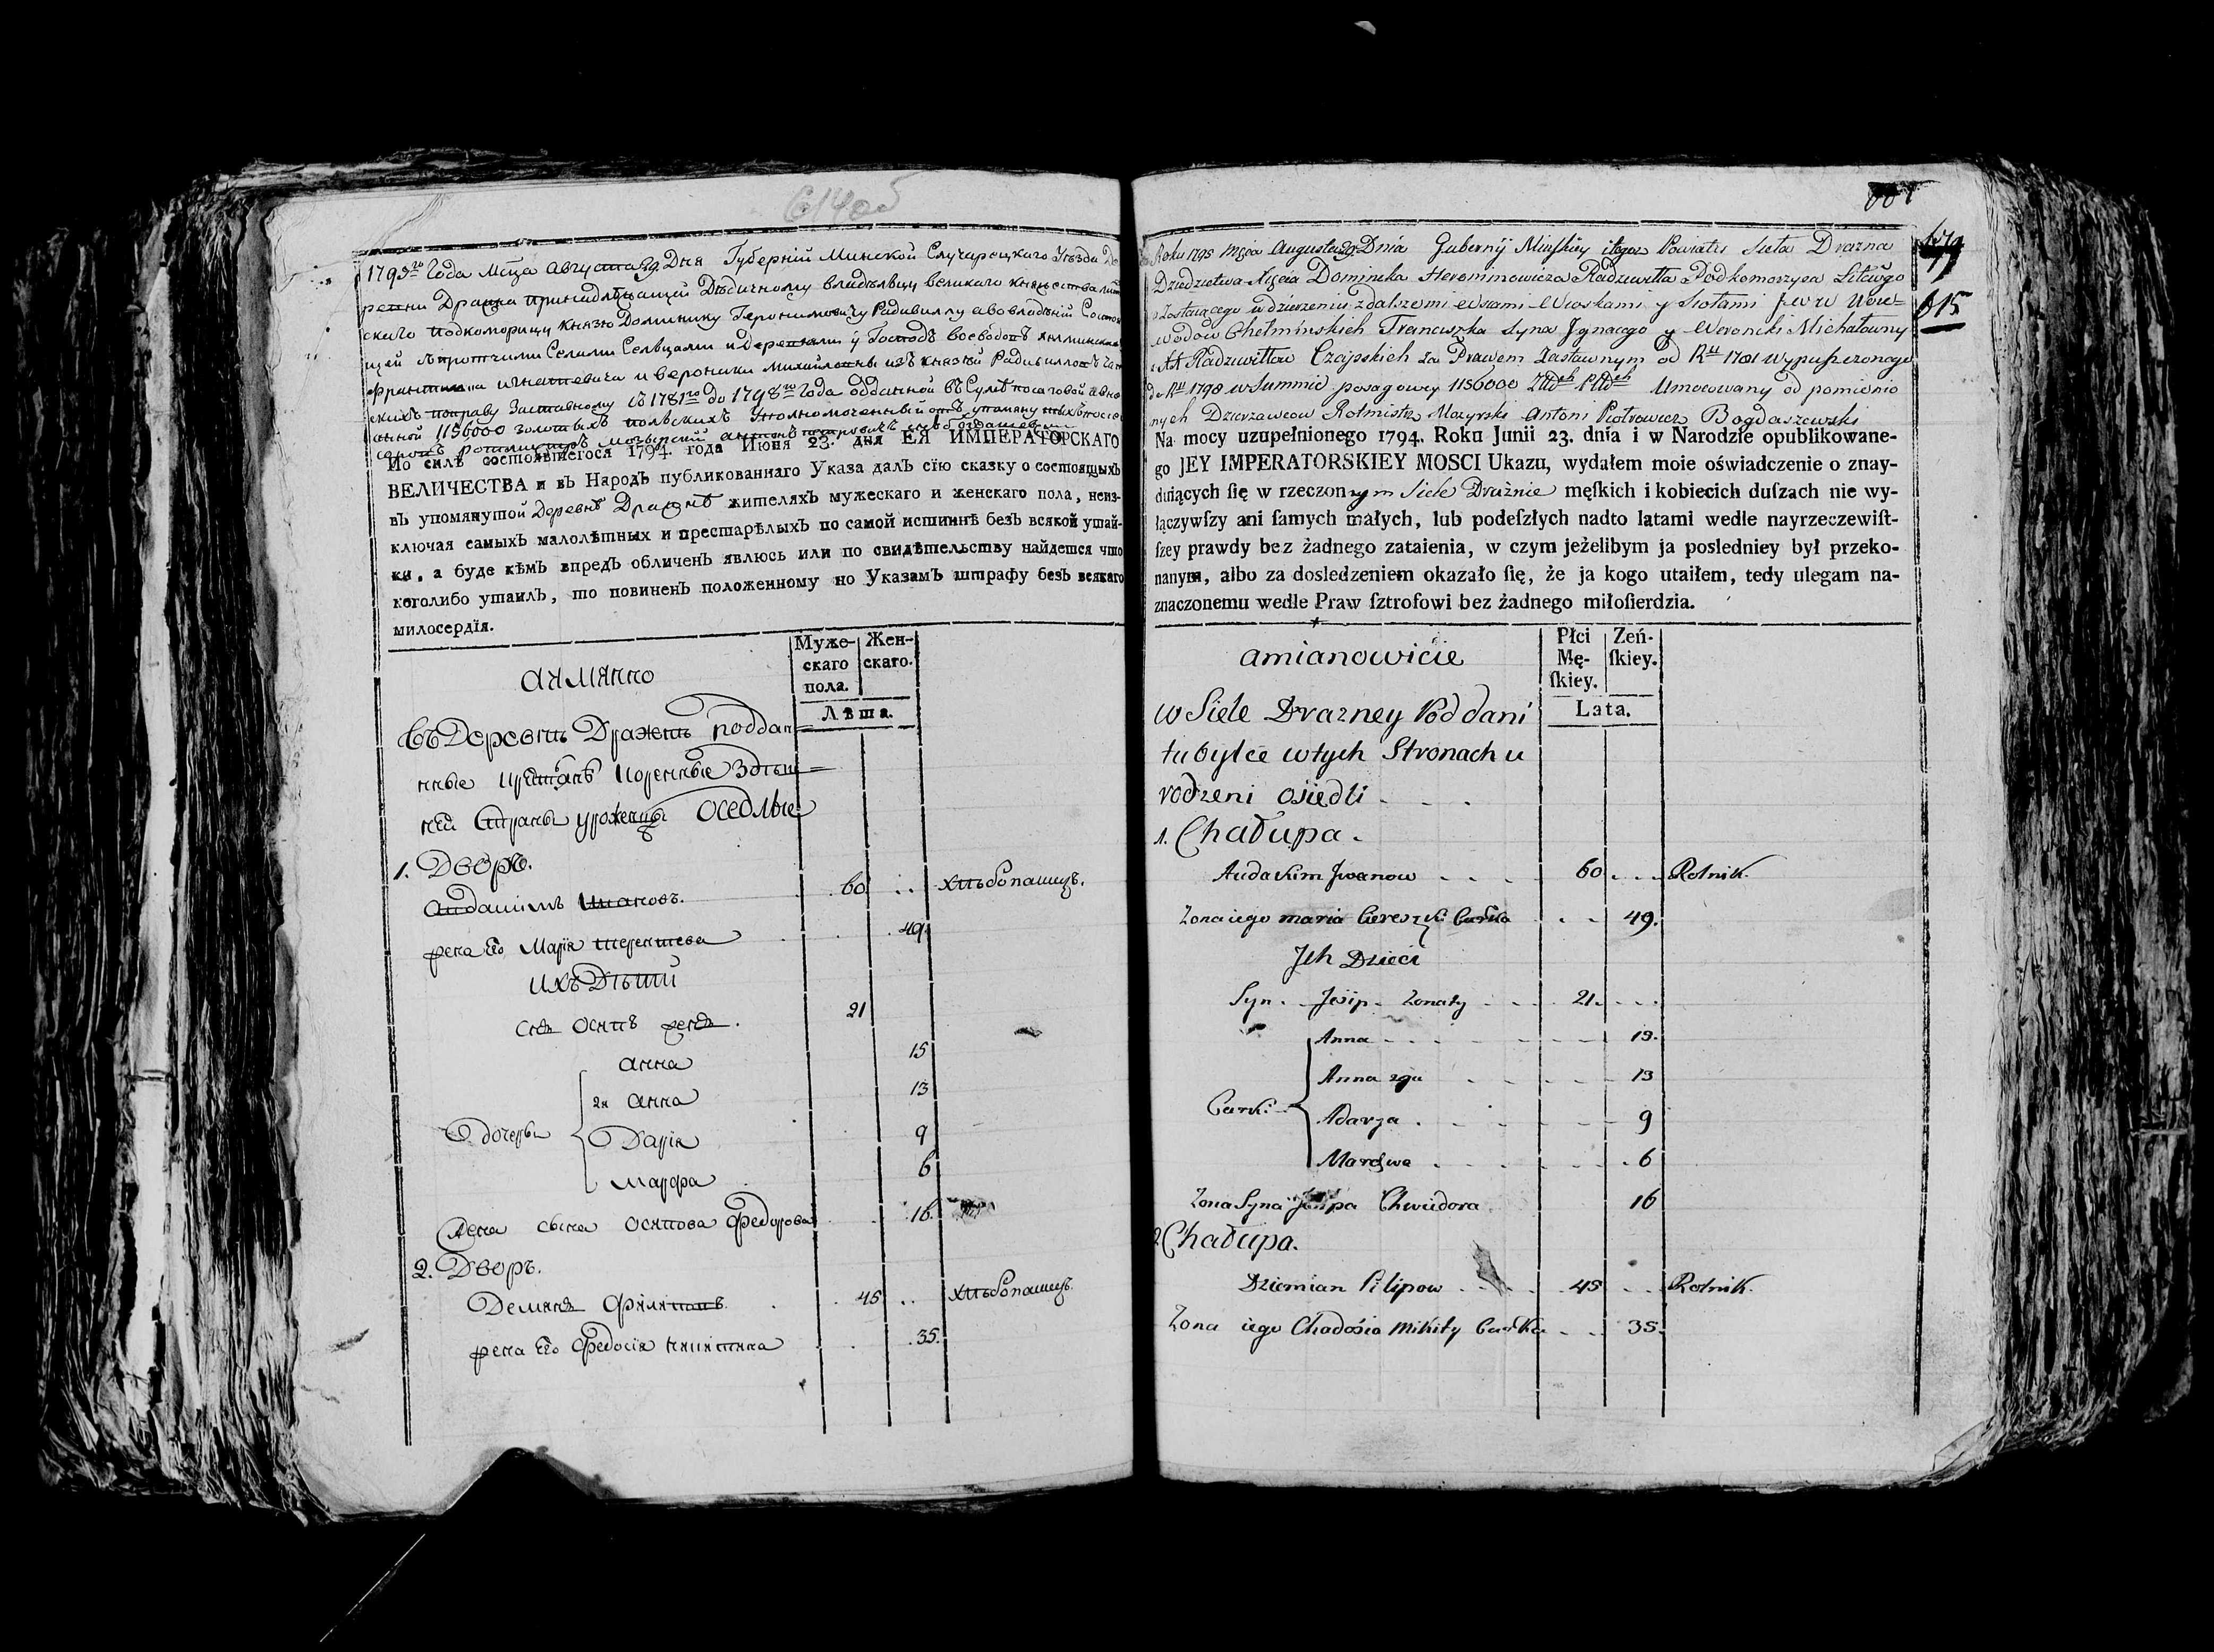 614 об
1795го Года Мѣца Августа 29 Дня Губерніи Минской Случарецкаго Уѣзда Де
ревни Дражна принадлѣжащей Дѣдичному владѣльцу великаго княжества лит
скаго Подкоморищи князю Доминику Геронимовичу Радивиллу а во владѣнiи Состо
щей съ протчими Селами Селцами и деревнями у Господъ воеводовъ хелминских
Франтишка игнатевича и вероники михайловны изъ князей Радивилловъ
скихъ поправу Заставному съ 1781го до 1798го Года отданной въ Сумѣ посаговой
1156000 золотыхъ польскихъ Уполномоченный отъ упомяну
ротмистръ мозырский антонъ петровичъ Богдашевски
По силѣ состоявшегося 1794. года Июня 23. дня ЕЯ ИМПЕРАТОРСКАГО
ВЕЛИЧЕСТВА и въ Народъ публикованнаго Указа далъ сїю сказку о состоящыхъ
въ упомянутой Деревнѣ Дражнѣ жителяхъ мужескаго и женскаго пола, неиз-
ключая самыхъ малолѣтныхъ и престарѣлыхъ по самой истиннѣ безъ всякой утай-
ки, а буде кѣмъ впредъ обличенъ явлюсь или по свидѣтельству найдется что
коголибо утаилъ, то повиненъ положенному по Указамъ штрафу безъ всякаго
милосердїя.
аимянно
Муже-
скаго
пола.
Жен-
скаго.
Лѣта.
въ Деревнѣ Дражнѣ поддан
нные коренные здѣш
ней Страны уроженцы оседлые
1. Дворъ.
Авдакимъ Ивановъ. 60 .. хлѣбопашецъ.
жена его Марія терентева 49.
ихъ Дѣти
Снъ осипъ женатъ. 21
дочеры
анна 15
2я анна 13
Дарія 9
марфа 6
Жена сына осипова Федорова 16.
2. Дворъ.
Демянъ Филиповъ. 45 .. хлѣбопашецъ.
жена его Федосія никитина 35.
615
Roku 1795 Msca Augusta 29 Dnia Gubernij Minskiey i tegoz Powiatu Sieła Drazna
Dziedzictwa Xcia Dominika Heronimowicza Radziwiłła Podkomorzyca Litewgo
zostaiącego w dzierzeniu z dalszemi wsiami Wioskami y Siołami J W W Woie-
wodow Chełminskich Franciszka Syna Jgnacego y Weroniki Michałowny
z XX Radziwiłłow Czapskich za Prawem Zastawnym od Rku 1781 wypuszczonego
do Rku 1798 w Summie posagowey 1156000 Złłch Plłch Umocowany od pomienio
nych Dzierzawcow Rotmistrz Mozyrski Antoni Piotrowicz Bogdaszewski
Na mocy uzupełnionego 1794. Roku Junii 23. dnia i w Narodzie opublikowane-
go JEY IMPERATORSKIEY MOSCI Ukazu, wydałem moie oświadczenie o znay-
duiących ſię w rzeczonym Siele Drażnie męſkich i kobiecich duſzach nie wy-
łączywſzy ani ſamych małych, lub podeſzłych nadto latami wedle nayrzeczewiſt-
ſzey prawdy bez żadnego zataienia, w czym jeżelibym ja posledniey był przeko-
nanym, albo za dosledzeniem okazało ſię, że ja kogo utaiłem, tedy ulegam na-
znaczonemu wedle Praw ſztrofowi bez żadnego miłoſierdzia.
amianowicie
Płci
Mę-
ſkiey.
Zeń-
ſkiey.
Lata.
w Siele Drazney Poddani
tubylce w tych Stronach u
rodzeni osiedli . . .
1. Chałupa.
Audakim Jwanow . . . 60 . . . Rolnik.
Zona iego maria Cereszki Curka . . 49.
Jch Dzieci
Syn . Josip . Zonaty . . . 21. . . .
Curki
Anna . . . 15.
Anna 2ga . . . 13
Adarya . . . 9
Marchwa . . . 6
Zona Syna Josipa Chwiedora 16
2. Chałupa.
Dziemian Pilipow . . . 45 . . . Rolnik.
Zona iego Chadosia Mikity Curka . . 35.